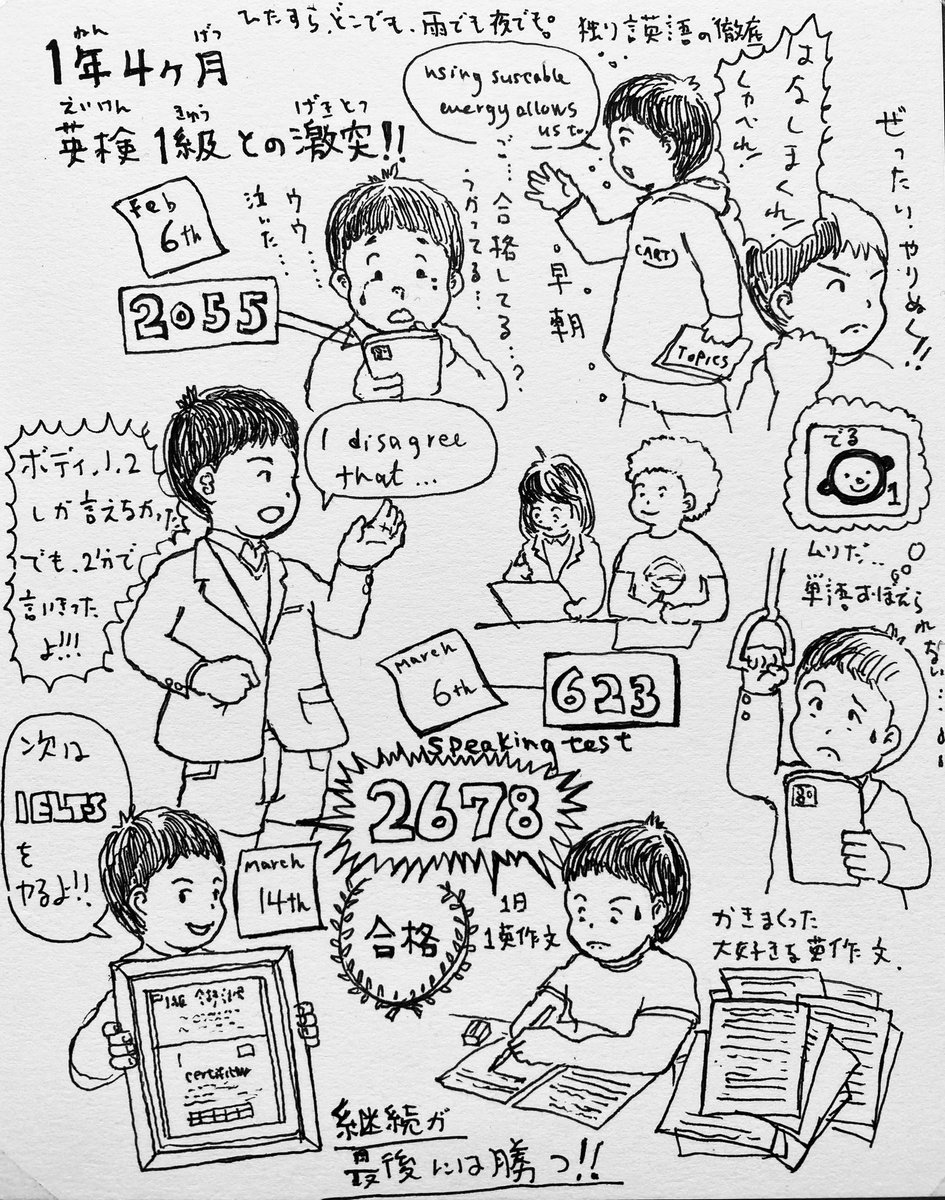 ひたすら、どこでも、雨でも夜でも。
独り言英語の徹底
ねん げつ
1年4ヶ月
えいけん きゅう げきとつ
英検1級との激突!!
using sustable
energy allows
us to..
はなしまくれ!
しゃべれ!
ぜったい、やりぬく!!
Feb
6th
2055
ウウ....
泣いた....
ご...合格してる...?
うかってる...
早朝
CART
TOPICS
でる
1
ムリだ...
単語おぼえられない...
ボディ、1、2
しか言えなかった
でも、2分で
言いきった
よ!!!
I disagree
that...
March
6th
623
speaking test
2678
March
14th
合格
次は
IELTS
を
やるよ!!
1日
1英作文
かきまくった
大好きな英作文.
1級 合格証明
certificate
継続が
最後には勝つ!!